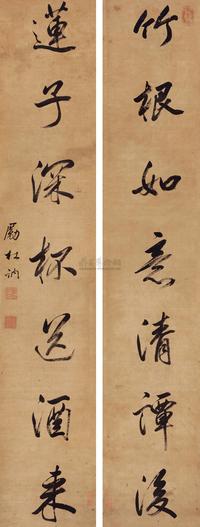 竹根如意清譚後
蓮子深杯送酒來
勵杜訥